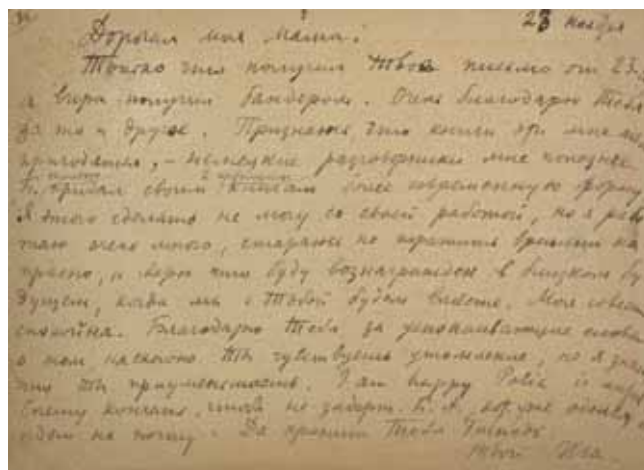 28 ноября
Дорогая моя Маша!
Только что получил Твое письмо от 23.,
а вчера получил бандероль. Очень благодарю Тебя
за то и другое. Признаюсь, что книги эти мне
пригодятся, – немецкие разговорники мне
придал своим книгам более современную форму
Я этого сделать не могу со своей работой, но я рабо
таю очень много, стараюсь не тратить времени на
прасно, и верю что буду вознагражден в близком бу
дущем, когда мы с Тобой будем вместе. Моя совесть
спокойна. Благодарю Тебя за успокаивающие слова
о том, насколько Ты чувствуешь утомление, но я знаю
что Ты приуменьшаешь. I am happy
Спешу кончать, чтоб не задерж.
идем на почту. Да хранит Тебя Господь
Твой